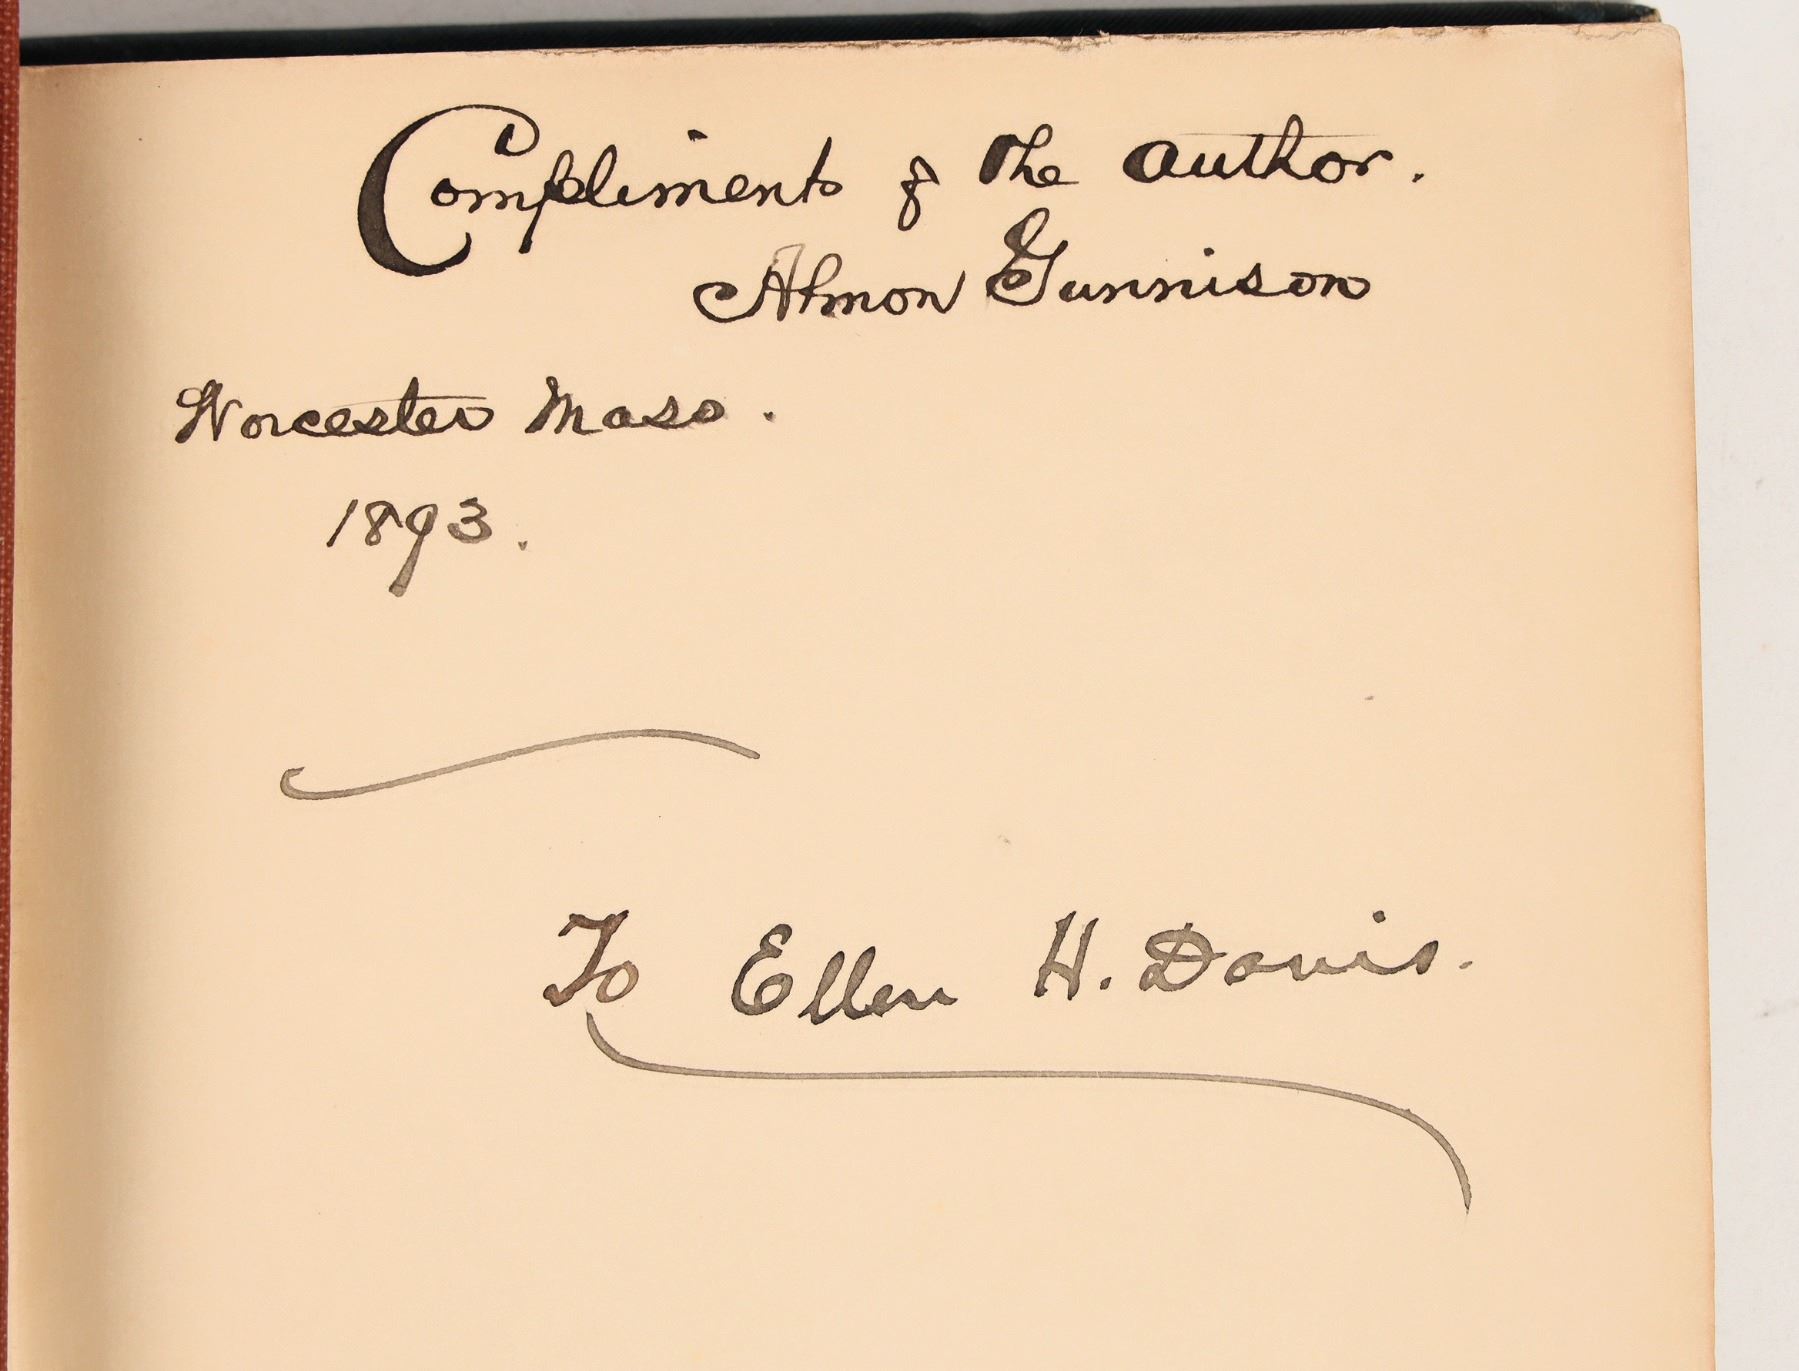 Compliments of the author.
Almon Gunnison
Worcester Mass.
1893.
To Ellen H. Davis.